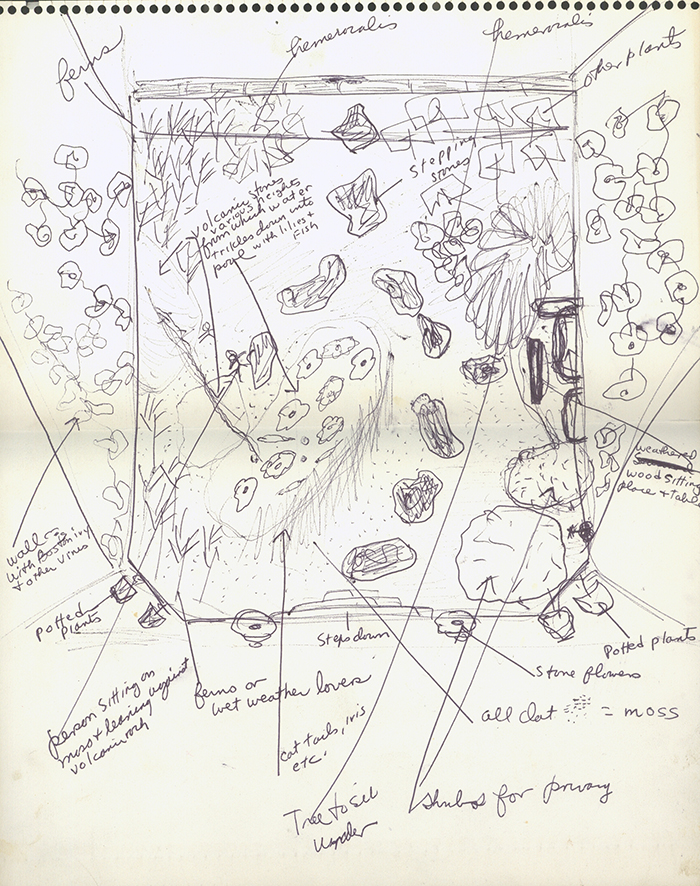 ferns
hemerocalis
hemerocalis
other plants
stepping
stones
volcanic stones
various heights
from which water
trickles down into
pool with lilies +
fish
weathered
wood sitting
place + table
walls
with Boston ivy
+ other vines
potted
plants
Steps down
Potted plants
stone flowers
person sitting on
moss + leaning against
volcanic rock
ferns or
wet weather lovers
all clat = moss
cat tails, iris
etc.
Tree to sit
under
shrubs for privacy